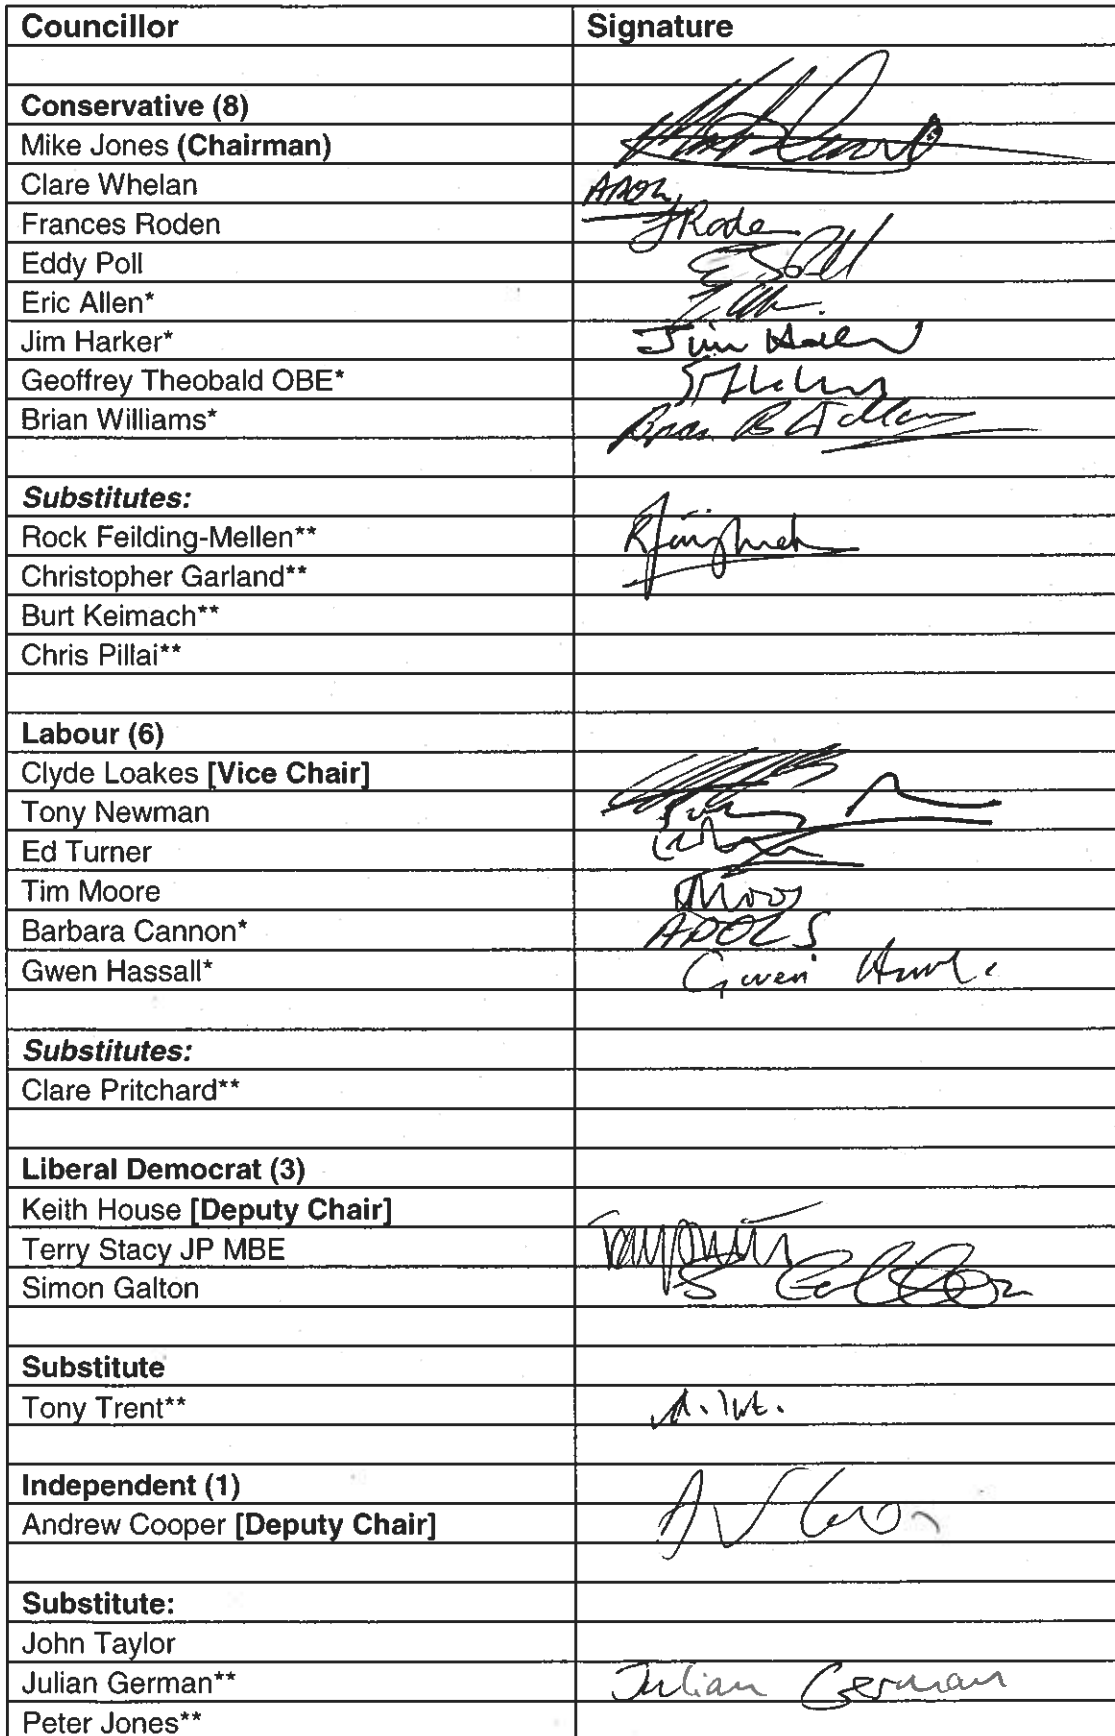 Councillor Signature
Conservative (8)
Mike Jones (Chairman)
Clare Whelan APOLS
Frances Roden FRoden
Eddy Poll
Eric Allen*
Jim Harker* Jim Harker
Geoffrey Theobald OBE*
Brian Williams* Brian
Substitutes:
Rock Feilding-Mellen**
Christopher Garland**
Burt Keimach**
Chris Pillai**
Labour (6)
Clyde Loakes [Vice Chair]
Tony Newman
Ed Turner
Tim Moore
Barbara Cannon* APOLS
Gwen Hassall* Gwen
Substitutes:
Clare Pritchard**
Liberal Democrat (3)
Keith House [Deputy Chair]
Terry Stacy JP MBE
Simon Galton
Substitute
Tony Trent**
Independent (1)
Andrew Cooper [Deputy Chair]
Substitute:
John Taylor
Julian German** Julian German
Peter Jones**